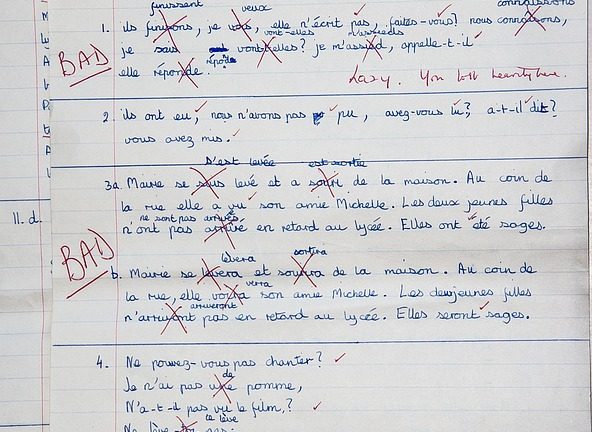 finissent veux connaissons
1. ils finirons, je vois, elle n'écrit pas, faites-vous? nous connaisons,
vont-elles m'assieds
je sais vont-elles? je m'assied, appelle-t-il
répond
elle réponde.
BAD
Lazy. You lost heavily here.
2. ils ont eu, nous n'avons pas pu, avez-vous lu? a-t-il dit?
vous avez mis.
s'est levée est sortie
3a. Marie se suis levé et a souri de la maison. Au coin de
la rue elle a vu son amie Michelle. Les deux jeunes filles
ne sont pas arrivés
n'ont pas arrivé en retard au lycée. Elles ont été sages.
BAD
lèvera sortira
b. Marie se levera et sourira de la maison. Au coin de
verra
la rue, elle voira son amie Michelle. Les deux jeunes filles
arriveront
n'arruyont pas en retard au lycée. Elles seront sages.
11. d.
4. Ne pouvez-vous pas chanter?
de
Je n'ai pas une pomme,
N'a-t-il pas vu le film,?
te lève
Ne lève-toi pas.